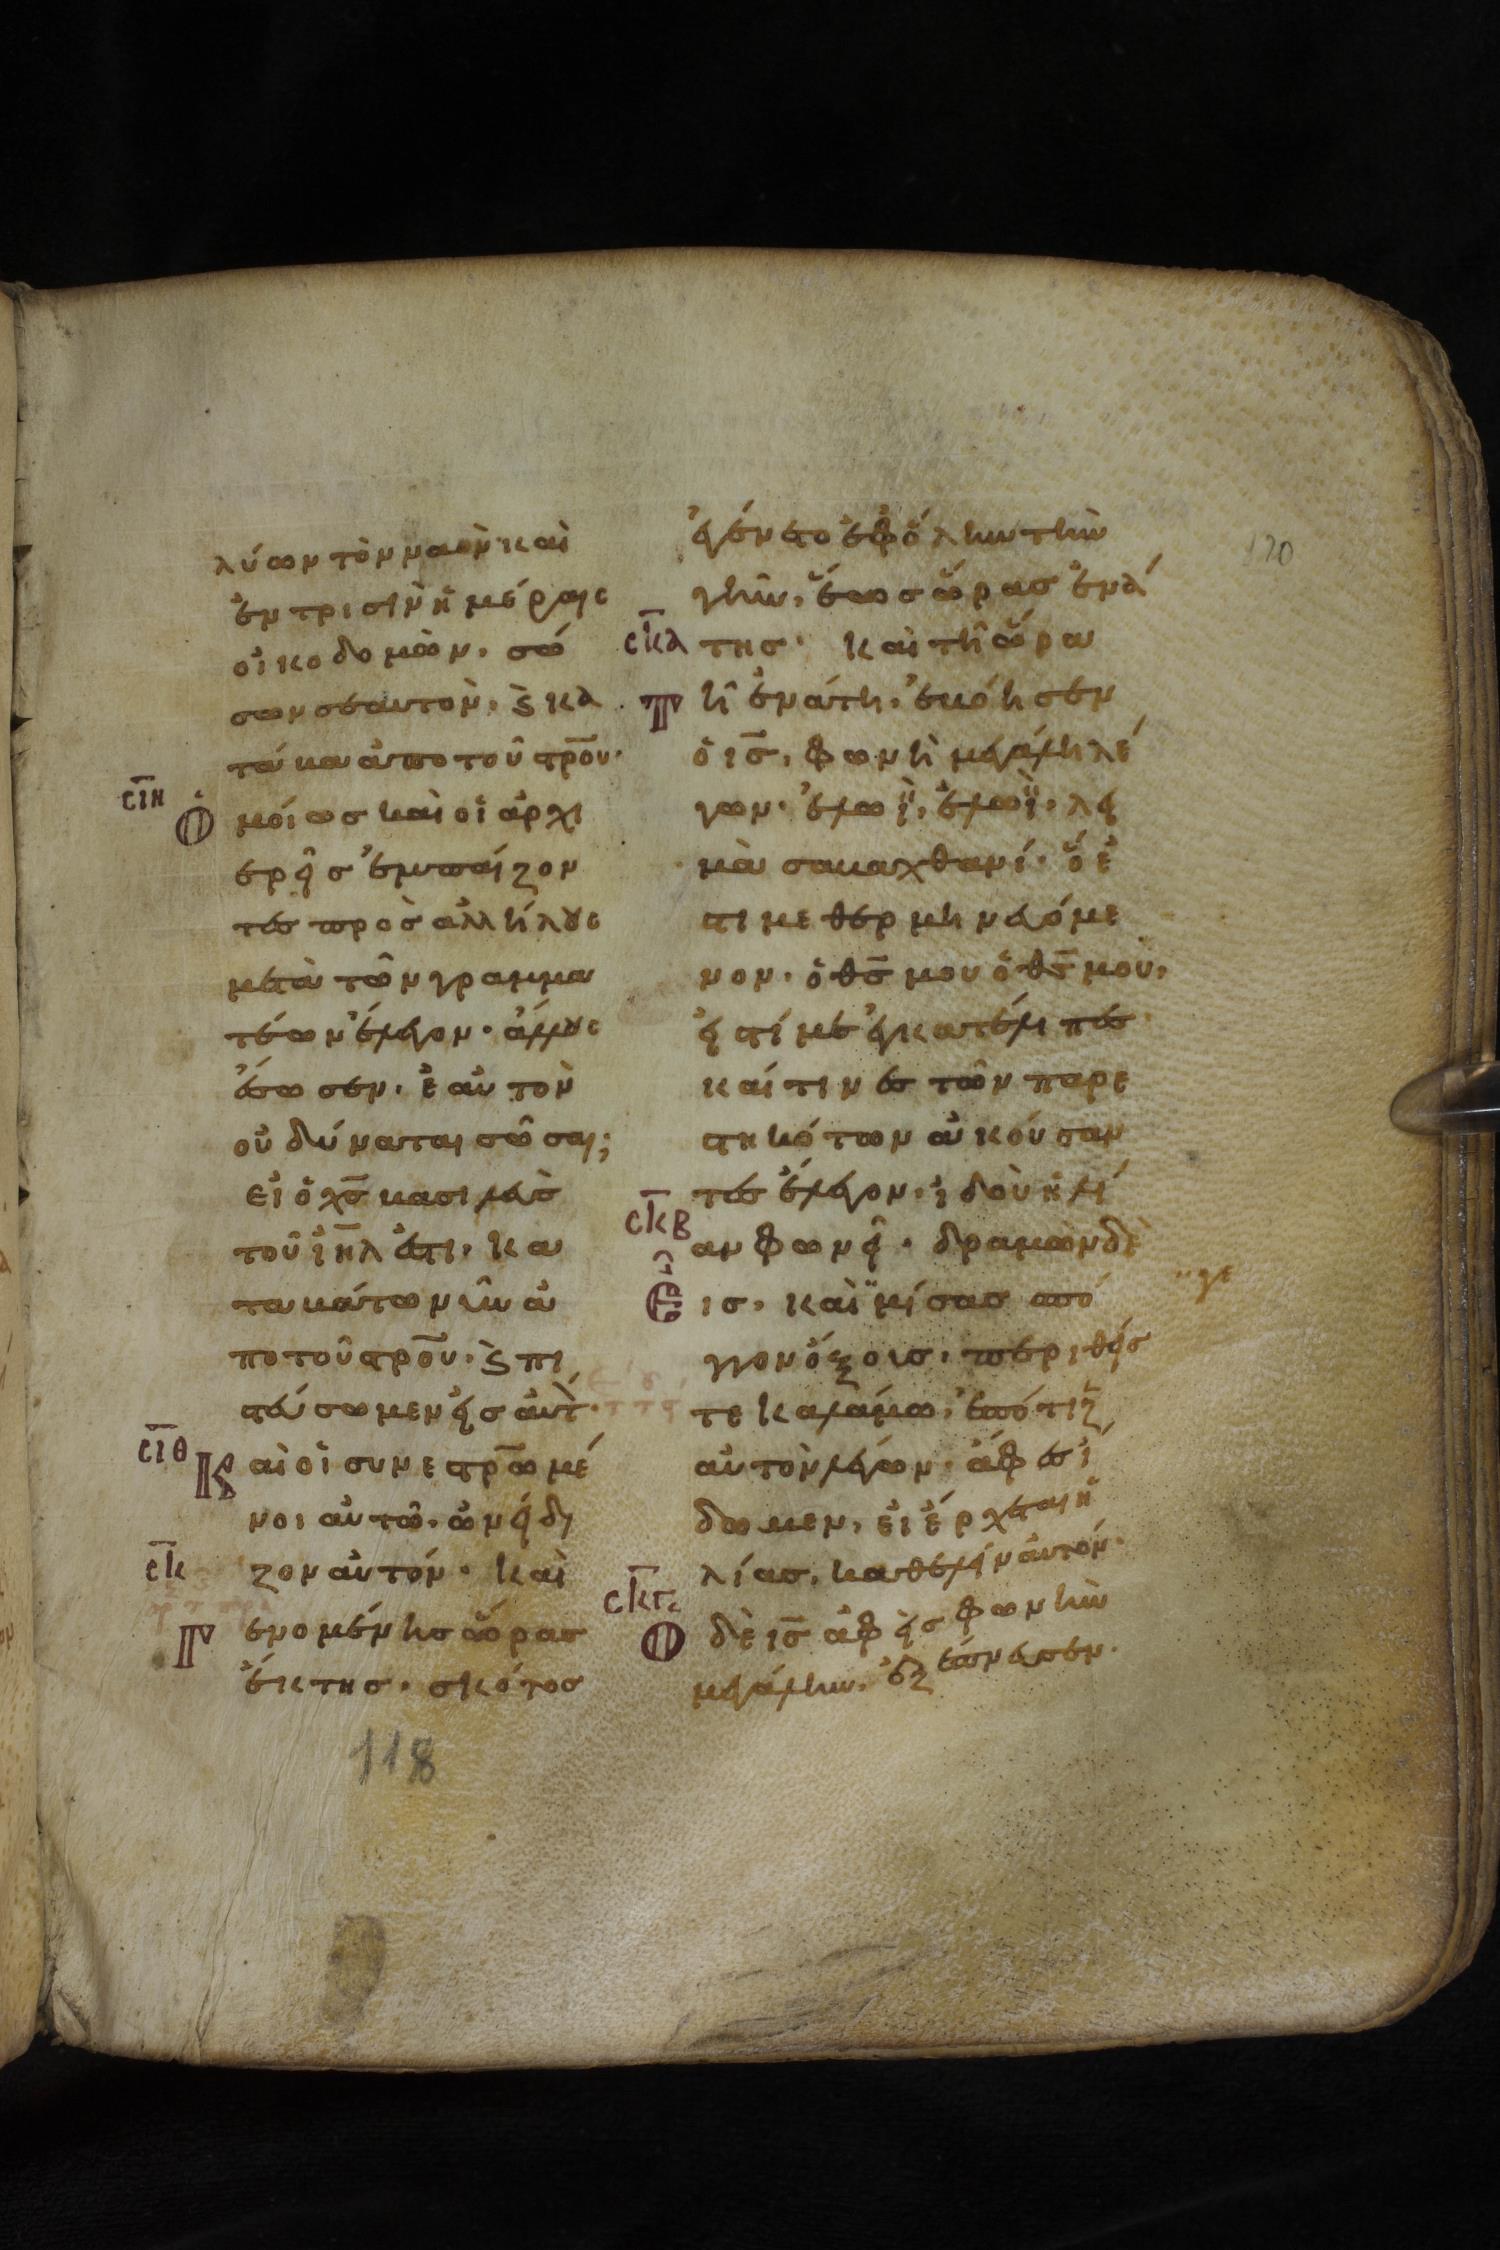 λύων τὸν ναὸν καὶ
ἐν τρισὶν ἡμέραις
οἰκοδομῶν, σῶ
σων σεαυτὸν, ϗ κα
τάβα ἀπο τοῦ στρ̅ου·
σ̅ι̅η̅
Ὁ μοίως καὶ οἱ ἀρχι
ερεῖσ ἐμπαίζον
τες πρὸς ἀλλήλους
μετὰ τῶν γραμμα
τέων ἔλεγον· ἄλλους
ἔσωσεν, ἑαυτὸν
οὐ δύναται σῶσαι;
εἰ ὁ χ̅σ̅ βασιλεὺς
τοῦ ἰ̅η̅λ̅ ἐστι, κα
ταβάτω νῦν ἀ
πο τοῦ στρ̅ου· ϗ πι
στεύσωμεν εἰσ αὐτ̀·
σ̅ι̅θ̅
Κ αὶ οἱ συνεστρ̅ωμέ
νοι αὐτῶ, ὠνείδι
ζον αὐτόν· καὶ
σ̅κ̅
Γ ενομένης ὥρας
ἕκτης, σκότος
ἐγένετο ἐφ ὅλην τὴν
γῆν, ἕως ὥρας ἐνά
σ̅κ̅α̅
της· καὶ τῆ ὥρα
Τ ῆ ἐνάτη, ἐβόησεν
ὁ ι̅σ̅, φωνὴ μεγάλη λέ
γων· ἐλωῒ, ἐλωῒ, λει
μὰ σαβαχθανί· ὅ ἐ
στι μεθερμηνευόμε
νον· ὁ θ̅σ̅ μου ὁ θ̅σ̅ μου,
εἰστί με ἐγκατέλιπες
καί τινες τῶν παρε
στηκότων ἀκούσαν
τες ἔλεγον, ἰδοὺ ἡλί
σ̅κ̅β̅
αν φωνεῖ· δραμὼν δὲ
Ε ισ, καὶ γεμίσας σπό
γγον ὄξους, περιθείς
τε καλάμω, ἐπότιζ
αὐτὸν λέγων· ἄφεσ ἴ
δωμεν, εἰ ἔρχεται ἡ
λίας, καθελεῖν αὐτόν·
σ̅κ̅γ̅
Ο δὲ ι̅σ̅ ἀφεὶς φωνὴν
μεγάλην, ἐξέπνευσεν·
118
120
γε